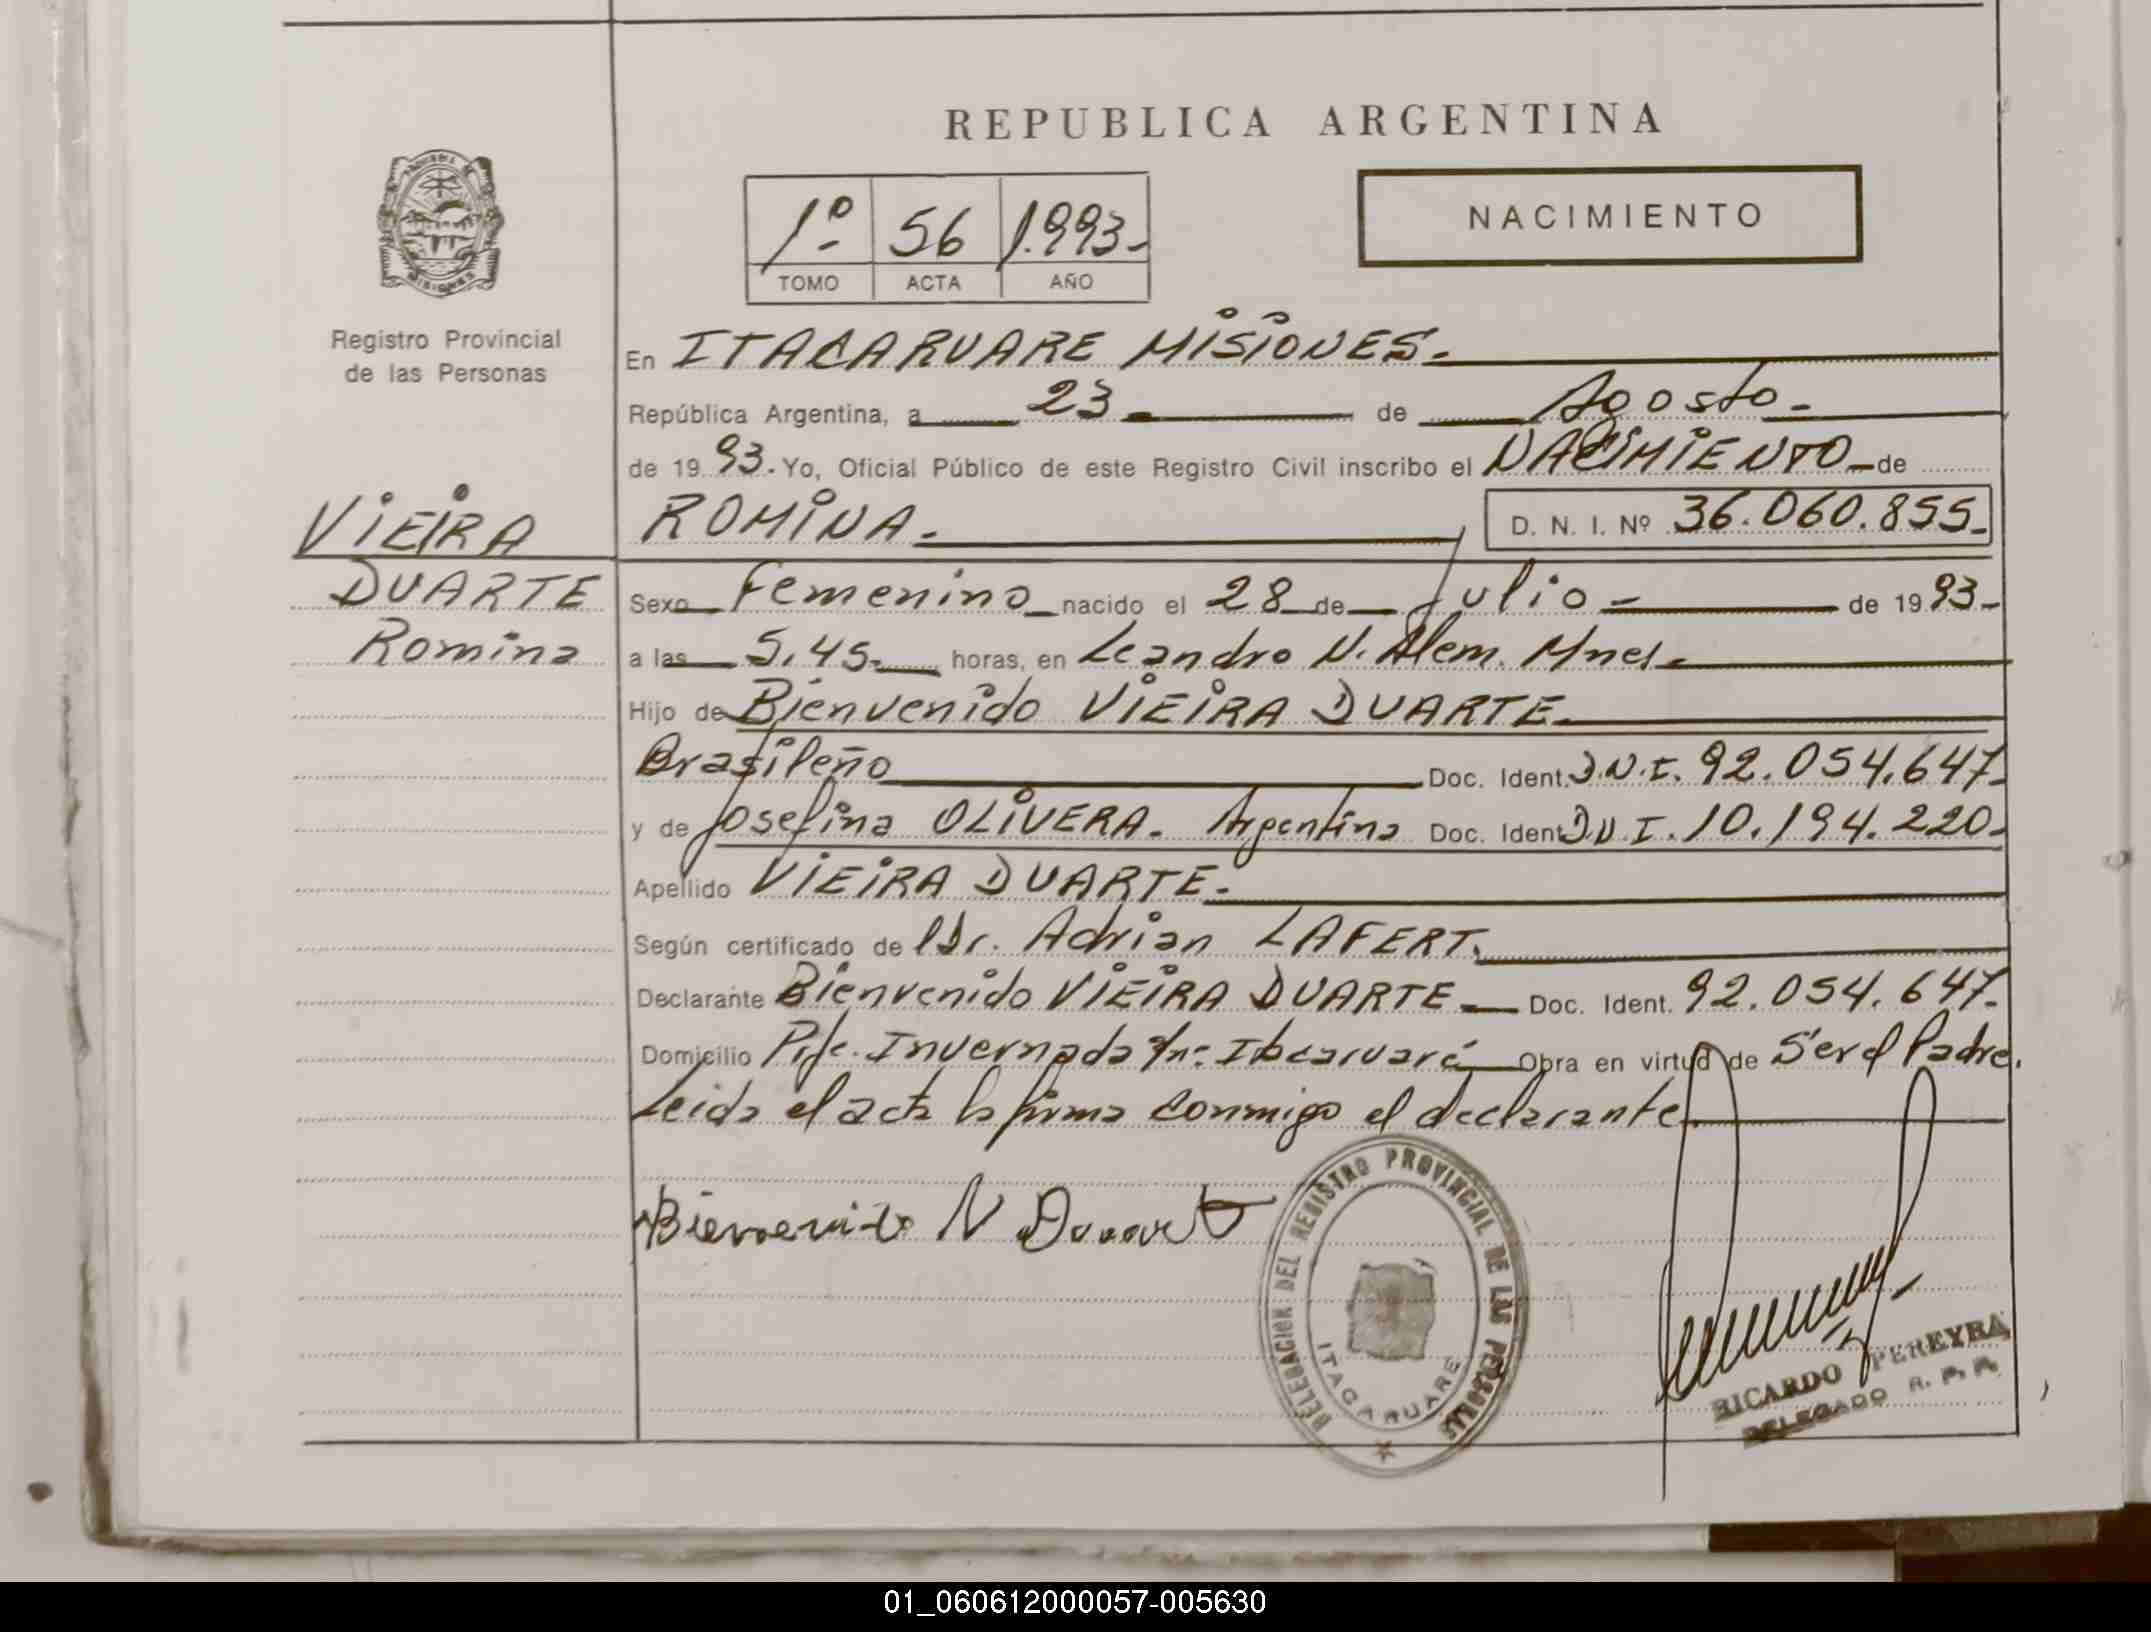 REPUBLICA ARGENTINA
1º 56 1.993.-
TOMO ACTA AÑO
NACIMIENTO
Registro Provincial
de las Personas
En ITACARUARE MISIONES.-
República Argentina, a 23- de Agosto-
de 1993. Yo, Oficial Público de este Registro Civil inscribo el NACIMIENTO de
VIEIRA
DUARTE
Romina
ROMINA.- D. N. I. Nº 36.060.855-
Sexo Femenino nacido el 28 de Julio- de 1993-
a las 5,45- horas, en Leandro N. Alem. Mnes.-
Hijo de Bienvenido VIEIRA DUARTE-
Brasileño Doc. Ident. D.N.I. 92.054.647-
y de Josefina OLIVERA. Argentina Doc. Ident D.N.I. 10.194.220-
Apellido VIEIRA DUARTE.-
Según certificado de Dr. Adrian LAFERT.
Declarante Bienvenido VIEIRA DUARTE- Doc. Ident. 92.054.647-
Domicilio Invernada Itacaruaré Obra en virtud de Ser el Padre.
Leida el acta la firma conmigo el declarante
Bienvenido V Duarte
DELEGACION DEL REGISTRO PROVINCIAL DE LAS PERSONAS
ITACARUARE
RICARDO PEREYRA
DELEGADO R. P. P.
01_060612000057-005630